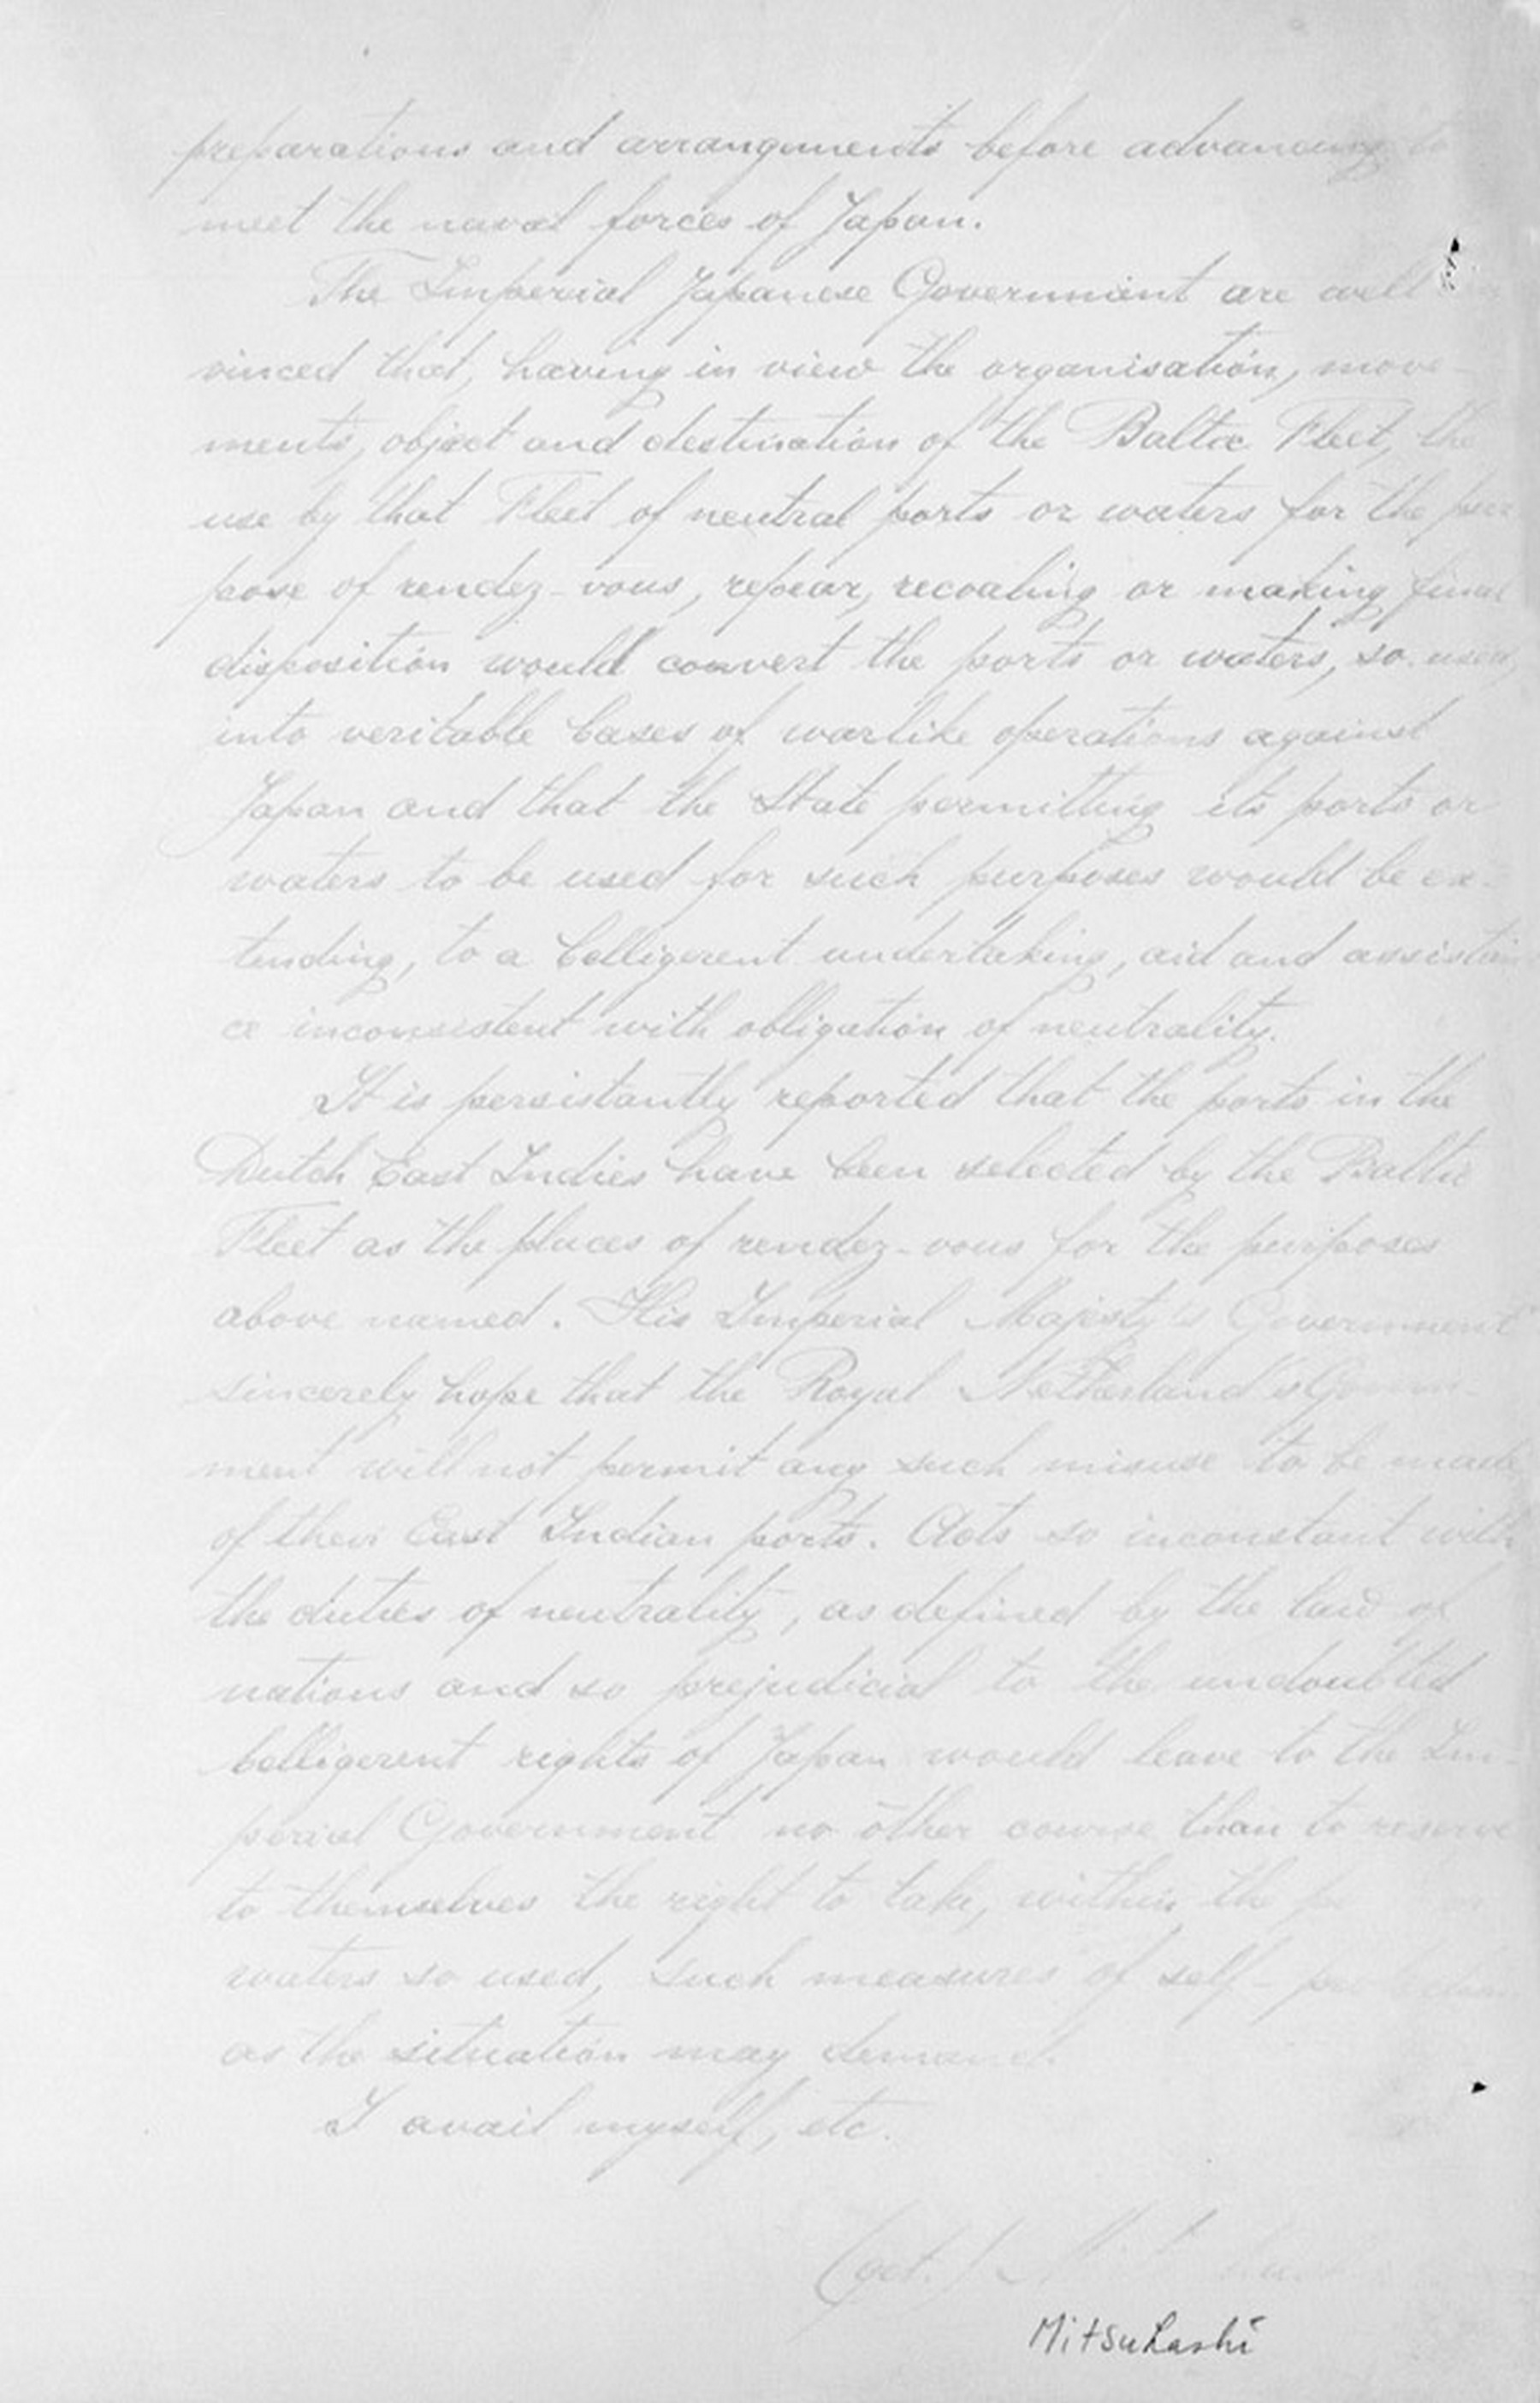 preparations and arrangements before advancing to
meet the naval forces of Japan.
The Imperial Japanese Government are well
vinced that, having in view the organisation, move-
ments, object and destination of the Baltic Fleet, the
use by that Fleet of neutral ports or waters for the pur
pose of rendez-vous, repear, recoaling or making final
disposition would convert the ports or waters, so used,
into veritable bases of warlike operations against
Japan and that the State permitting its ports or
waters to be used for such purposes would be ex-
tending, to a belligerent undertaking, aid and assistan
ce inconsistent with obligation of neutrality.
It is persistantly reported that the ports in the
Dutch East Indies have been selected by the Baltic
Fleet as the places of rendez-vous for the purposes
above named. His Imperial Majesty's Government
sincerely hope that the Royal Netherland's
ment will not permit any such misuse to be made
of their East Indian ports. Acts so inconstant with
the duties of neutrality, as defined by the law of
nations and so prejudicial to the undoubted
belligerent rights of Japan would leave to the Im-
perial Government no other course than to reserve
to themselves the right to take, within the
waters so used, such measures of self-
as the situation may demand.
I avail myself, etc.
(get.)
Mitsuhashi